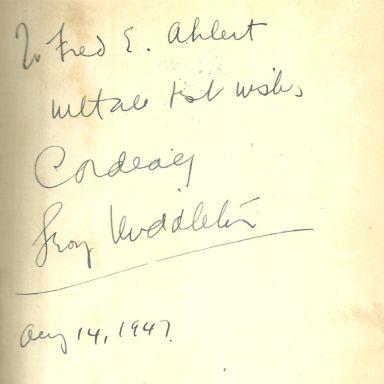 To Fred E. Ahlert
with all best wishes
Cordially
Middleton
Aug 14, 1947.